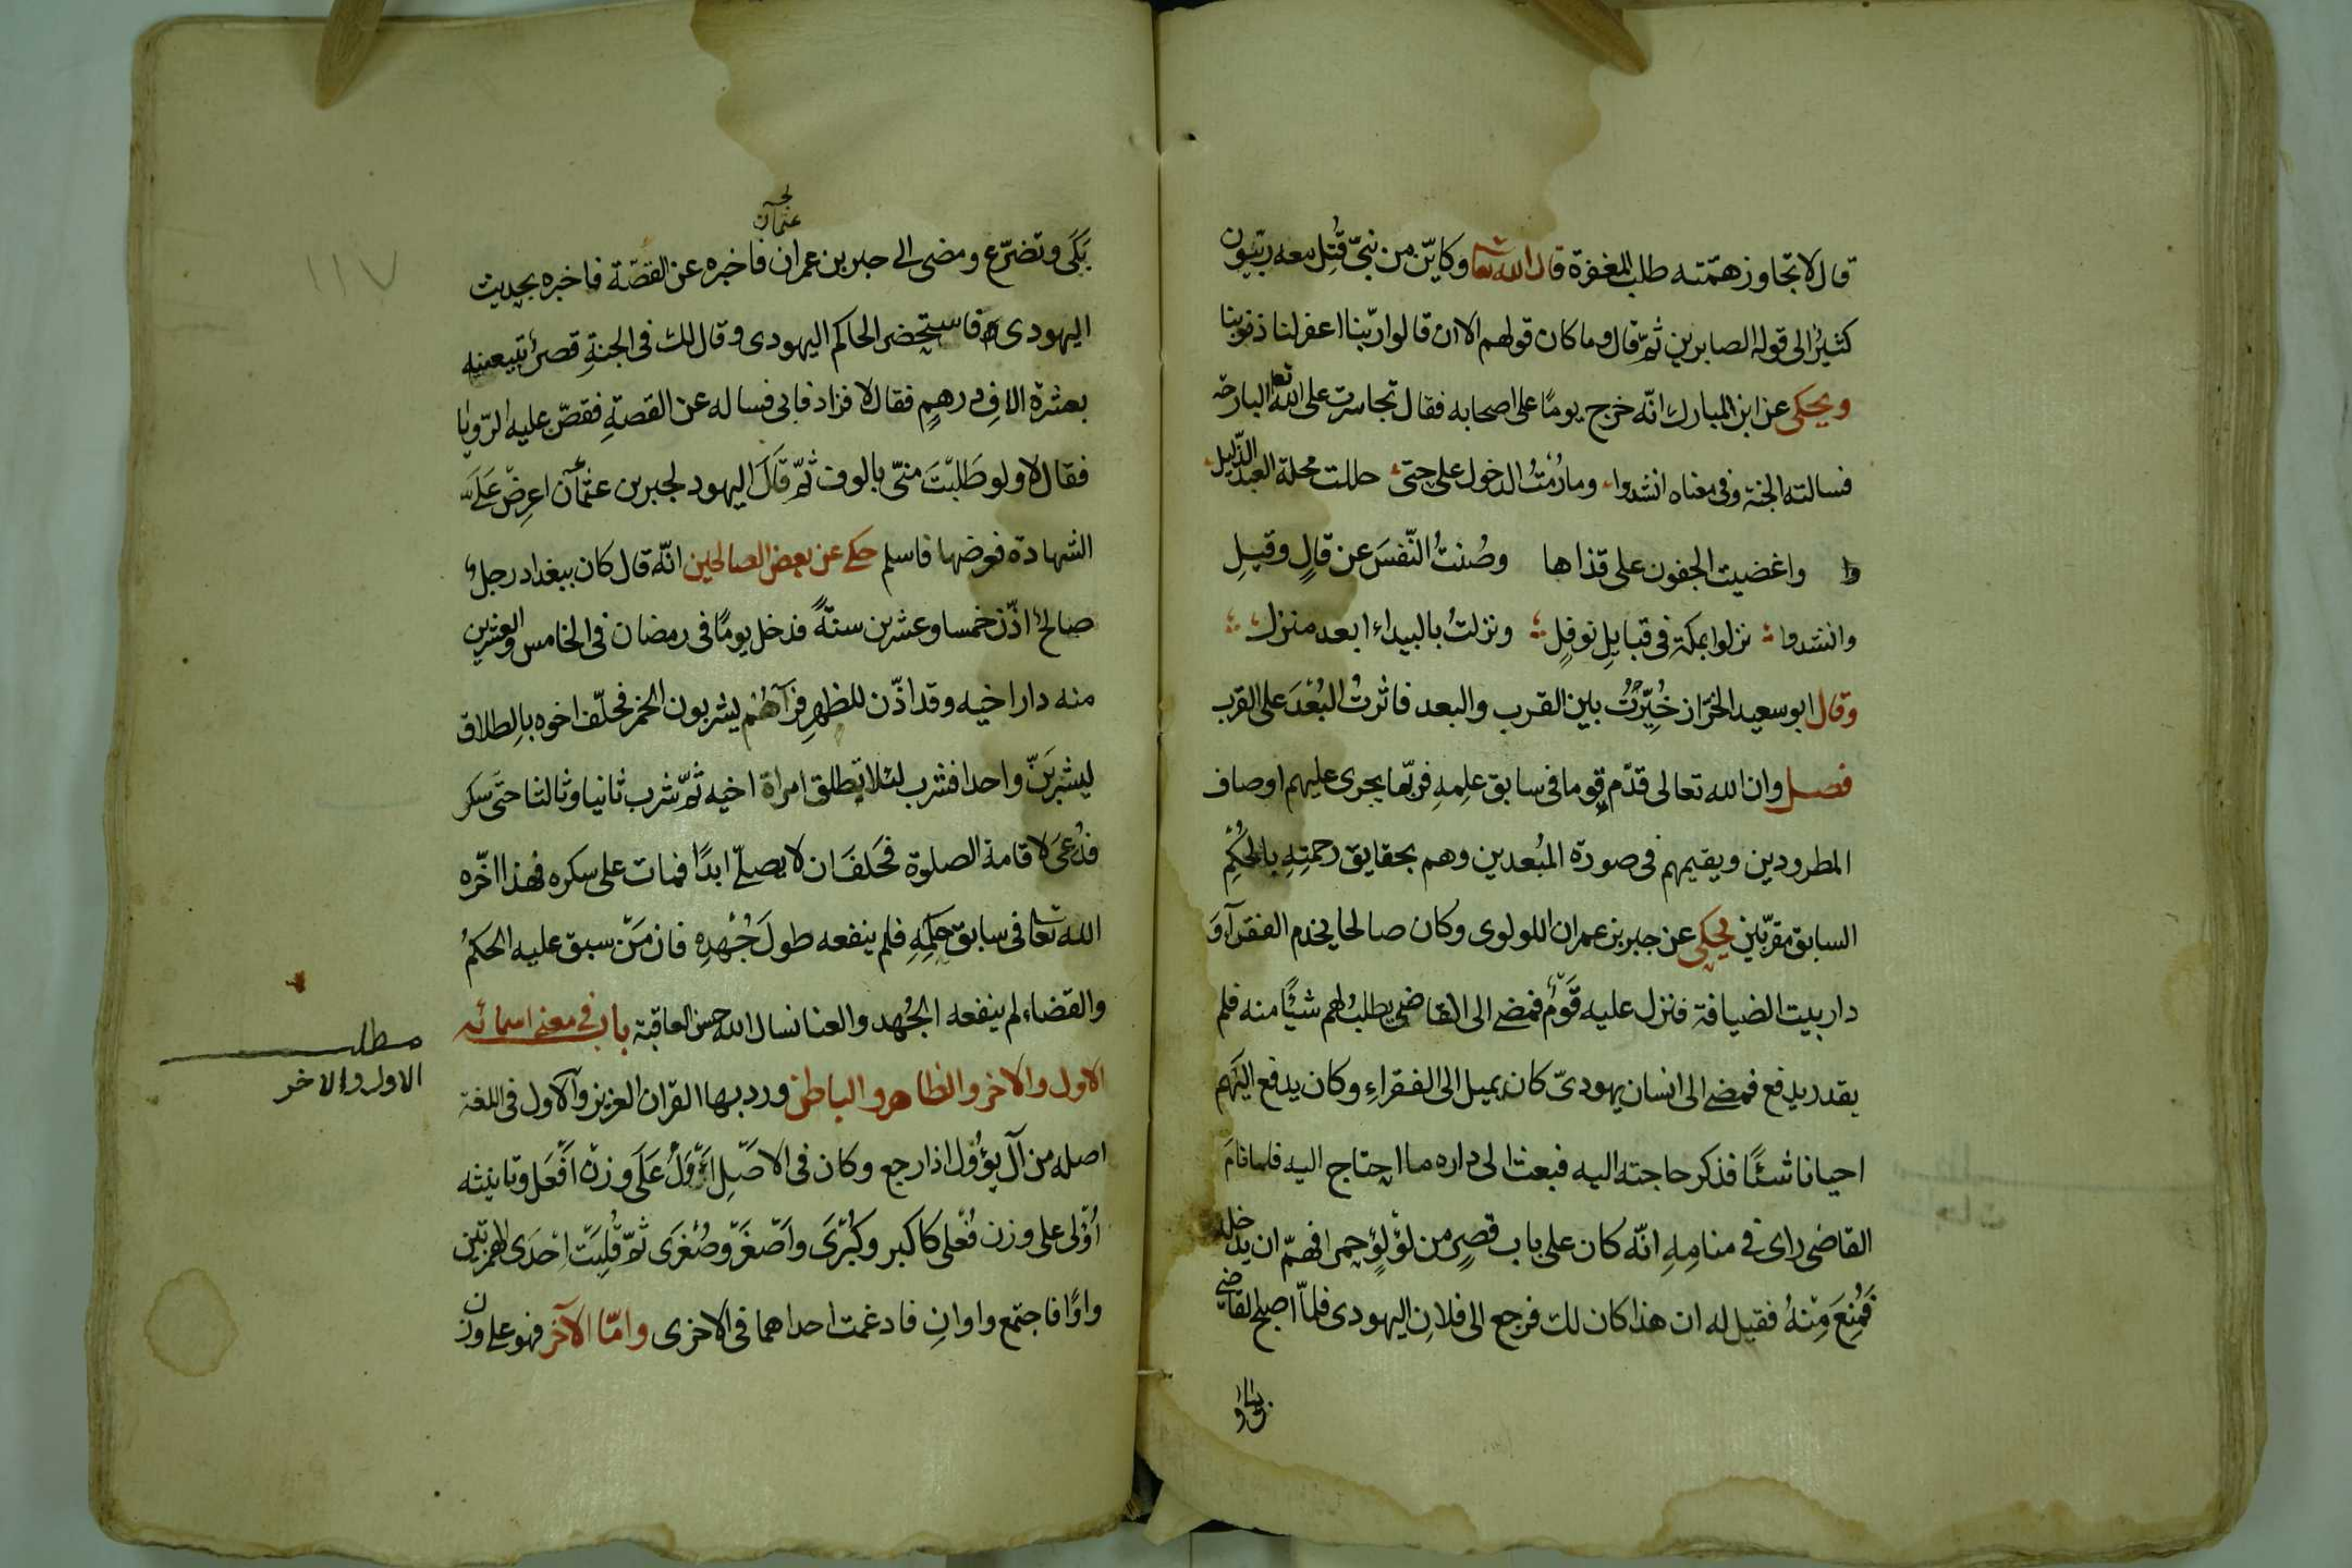 قال لا تجاوز همّته طلب المغفرة قال الله تعا وكايّن من نبيّ قُتِل معه ربّيون
كثيرٌ الى قوله الصابرين ثمّ قال وما كان قولهم الا ان قالوا ربّنا اغفر لنا ذنوبنا
ويحكى عن ابن المبارك انّه خرج يومًا على اصحابه فقال تجاسرت على الله تعا البارحة
فسالته الجنة وفى معناه انشدوا وما رُمْتُ الدخول على حتى حللت محلة العبد الذّليل
وا واغضيت الجفون على قذاها وصُنتُ النّفسَ عن قالٍ وقيلِ
وانشدوا نزلوا بمكة فى قبايلِ نوفلٍ ونزلتُ بالبيداء ابعد منزل
وقال ابو سعيد الخرّاز خُيِّرْتُ بين القرب والبعد فاثرتُ البُعْدَ على القرب
فصل وان الله تعالى قدّم قوما فى سابق علِمهِ فربّما يجرى عليهم اوصاف
المطرودين ويقيمهم فى صورة المبُعدين وهم بحقايق رحمتِهِ بالحُكْمِ
السابق مقرّبين يحكى عن جبر بن عمران اللولوى وكان صالحا يخدم الفقرآ وَ
داره بيت الضيافة فنزل عليه قَوْمٌ فمضى الى القاضى يطلب لهم شيًا منه فلم
يقدر يدفع فمضى الى انسان يهودىّ كان يميل الى الفقراءِ وكان يدفع اليَهم
احيانا شئًا فذكر حاجته اليه فبعث الى داره ما احتاج اليه فلما نامَ
القاضى راى فى منامِهِ انّه كان على باب قصرٍ من لؤلؤٍ حمرا فهمّ ان يدخله
فَمُنِعَ مِنْهُ فقيل له ان هذا كان لك فرجع الى فلانِ اليهودى فلمّا اصبح القاضى
بَكَى وتضرّع ومضى الى جبر بن عمران فاخبره عن القصّة فاخبره بحديث
عثمان
اليهودى فاستحضر الحاكم اليهودى وقال لك فى الجنةِ قصرٌ تبيعنيه
بعشرة الافِ درهمٍ فقال لا فزاد فابى فساله عن القصةِ فقصّ عليه الرّويا
فقال لا ولو طَلبْتَ منّى بالوف ثمّ قَالَ اليهود لجبر بن عثمآن اعرِضْ عَلَىّ
الشهادة فعرضها فاسلم حكى عن بعض الصالحين انّه قال كان ببغداد رجلٌ
صالحٌ اذّن خمسا وعشرين سنةً فدخل يومًا فى رمضان فى الخامس والعشرين
منه دار اخيه وقد اذّن للظهرِ فرآهُم يشربون الخمر فحلّف اخوه بالطلاق
ليشْربَنّ واحدا فشرب لئلا تطلق امراة اخيه ثمّ شرب ثانيا وثالثا حتى سكر
فدُعىَ لاقامة الصلوة فحَلفَ ان لا يصلّى ابدًا فمات على سكره فهذا اخّره
الله تعا فى سابق حكمِهِ فلم ينفعه طولَ جُهْدِه فان مَنْ سبق عليه الحكمُ
والقضاء لم ينفعه الجُهد والعنا نسال الله حسن العاقبة باب فى معنى اسمائه
الاول والاخر والظاهر والباطن ورد بها القران العزيز والاول فى اللغة
مطلب
الاول والاخر
اصله من آل يؤول اذا رجع وكان فى الاصْلِ اَوْوَلُ عَلَى وزن اَفْعَل وتانيثه
اُوْلى على وزن فُعْلى كاكبر وكُبْرَى واَصْغَر وصُغْرَى ثمّ قُلِبَتْ اِحْدَى الهمزتين
واوًا فاجتمع واوانِ فادغمت احداهما فى الاخرى وامّا الآخر فهو على وزن
١١٧